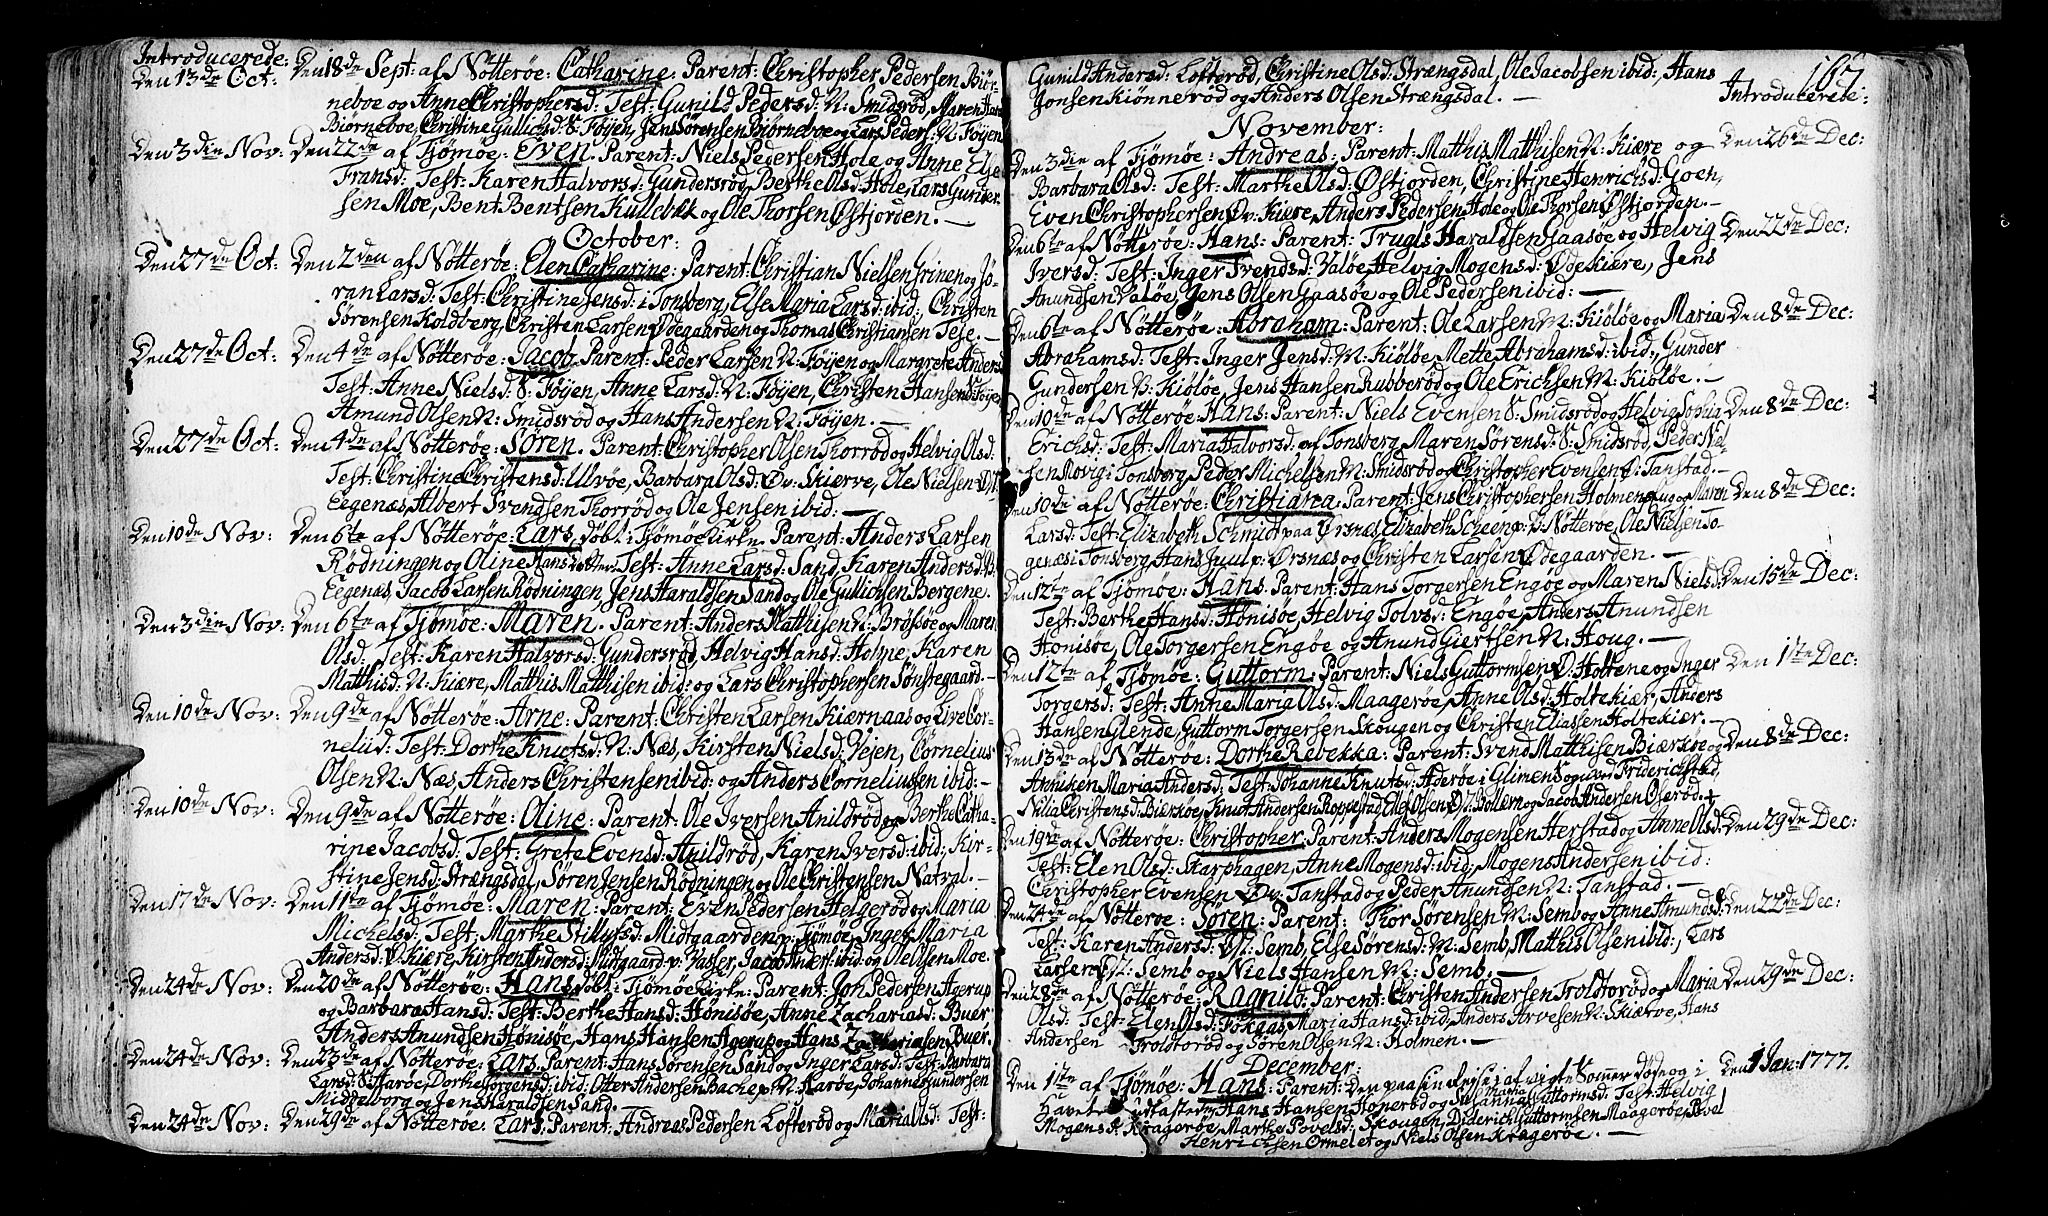 Introducerede:
Den 13de Oct: Den 18de Sept: af Nötterøe: Catharine: Parent: Christopher Pedersen Biør-
neboe og Anne Christophersd: Test: Gunild Pedersd: N: Smidsrød, Maren
Biørneboe, Christine Gullichsd: S: Føyen, Jens Sørensen Biørneboe og Lars Peders: N: Føyen
Den 3die Nov: Den 22de af Tjømøe: Even. Parent: Niels Pedersen Hole og Anne Else
Fransd: Test: Karen Halvorsd: Gundersrød, Berthe Olsd: Hole, Lars Gunder-
sen Moe, Bent Bentsen Kullebek og Ole Thorsen Østjorden. —
October:
Den 27de Oct: Den 2den af Nötterøe: Elen Catharine: Parent: Christian Nielsen Grinen og Jø-
ran Larsd: Test: Christine Jensd: i Tonsberg, Else Maria Larsd: ibid:, Christen
Sørensen Koldberg, Christen Larsen Ødegaarden og Thomas Christiansen Teie. —
Den 27de Oct: Den 4de af Nötterøe: Jacob. Parent: Peder Larsen N: Føyen og Margrete Anders
Test: Anne Nielsd: S: Føyen, Anne Larsd: N: Føyen, Christen Hansen S: Føyen
Amund Olsen N: Smidsrød og Hans Andersen N: Føyen. —
Den 27de Oct: Den 4de af Nötterøe: Søren. Parent: Christopher Olsen Thorrød og Helvig Olsd:
Test: Christine Christensd: Ulvøe, Barbara Olsd: Øv: Skierve, Ole Nielsen
Eegenæs, Albert Svendsen Thorrød og Ole Jensen ibid: —
Den 10de Nov: Den 6te af Nötterøe: Lars, döbt i Tjømøe Kirke. Parent: Anders Larsen
Rødningen og Oline Hansdatter. Test: Anne Larsd: Sand, Karen Andersd:
Eegenæs, Jacob Larsen Rødningen, Jens Haraldsen Sand og Ole Gullichsen Bergene.
Den 3die Nov: Den 6te af Tjømøe: Maren. Parent: Anders Mathisen N: Brøtsøe og Maren
Olsd: Test: Karen Halvorsd: Gundersrød, Helvig Hansd: Holme, Karen
Mathisd: N: Kiære, Matthis Matthisen ibid: og Lars Christophersen Sønstegaard. —
Den 10de Nov: Den 9de af Nötterøe: Arne: Parent: Christen Larsen Kiærnaas og Live Cor-
neliid: Test: Dorthe Knutsd: N: Næs, Kirsten Nielsd: Vejen, Cornelius
Olsen N: Næs, Anders Christensen ibid: og Anders Corneliussen ibid: —
Den 10de Nov: Den 9de af Nötterøe: Oline: Parent: Ole Iversen Anildrød og Berthe Catha-
rine Jacobsd: Test: Grete Evensd: Anildrød, Karen Iversd: ibid:, Kir-
stine Jensd: Strængsdal, Søren Jensen Rødningen og Ole Christensen Natval. —
Den 17de Nov: Den 11te af Tjømøe: Maren: Parent: Even Pedersen Helgerød og Maria
Michelsd: Test: Marthe Midtgaarden p: Tjømøe, Inger Maria
Andersd: Ø: Kiære, Kirsten Andersd: Midtgaard p: Vasser, Jacob Anders: ibid og Ole Olsen Moe.
Den 24de Nov: Den 20de af Nötterøe: Hans, döbt i Tjømøe Kirke: Parent: Jon Pedersen Agerup
og Barbara Hansd: Test: Berthe Hansd: Hønisøe, Anne Zachariasd: Buer
Anders Anundsen Hønisøe, Hans Hansen Agerup og Hans Zachariasen Buer.
Den 24de Nov: Den 23de af Nötterøe: Lars. Parent: Hans Sørensen Sand og Inger Larsd: Test: Barbara
Larsd: S: Harøe, Dorthe Torgensd: ibid: Otter Andersen Backe p: N: Harøe, Johannes Gundersen
Middelborg og Jens Haraldsen Sand. —
Den 24de Nov: Den 29de af Nötterøe: Lars: Parent: Andreas Pedersen Lofterød og Maria Olsd: Test:
167
Gunild Andersd: Lofterød, Christine Olsd: Strængsdal, Ole Jacobsen ibid:, Hans
Jonsen Kiønnerød og Anders Olsen Strængsdal. —
Introducerede:
November:
Den 3die af Tjømøe: Andreas: Parent: Matthis Matthisen N: Kiære og Den 26de Dec:
Barbara Olsd: Test: Marthe Olsd: Østjorden, Christine Henrichsd: Goen,
Even Christophersen Øv: Kiære, Anders Pedersen Hole og Ole Thorsen Østjorden. —
Den 6te af Nötterøe: Hans: Parent: Trugls Haraldsen Gaasøe og Helvig Den 22de Dec:
Iversd: Test: Inger Svendsd: Valøe, Helvig Mogensd: Ødekiære, Jens
Anundsen Valøe, Jens Olsen Gaasøe og Ole Pedersen ibid: —
Den 6te af Nötterøe: Abraham: Parent: Ole Larsen N: Kiöløe og Maria Den 8de Dec:
Abrahamsd: Test: Inger Jensd: N: Kiöløe, Mette Abrahamsd: ibid:, Gunder
Gundersen N: Kiöløe, Jens Hansen Rubberød og Ole Erichsen N: Kiöløe. —
Den 10de af Nötterøe: Hans: Parent: Niels Evensen S: Smidsrød og Helvig Sophia Den 8de Dec:
Erichsd: Test: Maria Halvorsd: af Tonsberg, Maren Sørensd: S: Smidsrød, Peder Niel-
sen Movig i Tonsberg, Peder Michelsen N: Smidsrød og Christopher Evensen Ø: Tanstad. —
Den 10de af Nötterøe: Christiana. Parent: Jens Christophersen Holmen og Maren Den 8de Dec:
Larsd: Test: Elizabeth Schmidt paa Ørsnæs, Elizabeth Scheen p: Nötterøe, Ole Nielsen To-
genæs i Tonsberg, Hans Juul p: Ørsnæs og Christen Larsen Ødegaarden. —
Den 12te af Tjømøe: Hans. Parent: Hans Torgersen Engøe og Maren Nielsd: Den 15de Dec:
Test: Berthe Hansd: Hønisøe, Helvig Tolvsd: Engøe, Anders Anundsen
Hønisøe, Ole Torgersen Engøe og Anund Giertsen N: Houg. —
Den 12te af Tjømøe: Guttorm: Parent: Niels Guttormsen Ø: Holtene og Inger Den 1ste Dec:
Torgersd: Test: Anne Maria Olsd: Maagerøe, Anne Olsd: Holtekiær, Anders
Hansen Glende, Guttorm Torgersen Skougen og Christen Eliassen Holtekier. —
Den 13de af Nötterøe: Dorthe Rebekka: Parent: Svend Matthisen Bierkøe og Den 8de Dec:
Anniken Maria Andersd: Test: Johanne Knutsd: Aderøe i Glimens Sogn ved Friderichstad,
Nilia Christensd: Bierkøe, Knut Andersen Roppestad, Ole Olsen Bollern og Jacob Andersen Oserød.
Den 19de af Nötterøe: Christopher: Parent: Anders Mogensen Herstad og Anne Olsd: Den 29de Dec:
Test: Elen Olsd: Skarphagen, Anne Mogensd: ibid, Mogens Andersen ibid:
Christopher Evensen Øv: Tanstad og Peder Anundsen N: Tanstad. —
Den 24de af Nötterøe: Søren: Parent: Thor Sørensen N: Semb og Anne Amundsd: Den 22de Dec:
Test: Karen Andersd: Øv: Semb, Else Sørensd: N: Semb, Matthis Olsen ibid:, Lars
Larsen Øv: Semb og Niels Hansen N: Semb. —
Den 28de af Nötterøe: Ragnild: Parent: Christen Andersen Troldtorød og Maria Den 29de Dec:
Olsd: Test: Elen Olsd: Fokaas, Maria Hansd: ibid, Anders Torvesen N: Skierve, Hans
Andersen Troldtorød og Søren Olsen N: Holmen. —
December:
Den 1ste af Tjømøe: Hans: Parent: Den paa sin Reise i afvigte Sommer døde og i Den 1 Jan: 1777.
Havet udkastede Hans Hansen Honerød og Susanna Maria Guttormsd: Test: Helvig
Mogensd: Kragerøe, Marthe Povelsd: Skougen, Diderich Guttormsen Maagerøe, Povel
Henrichsen Ormelet og Niels Olsen Kragerøe. —